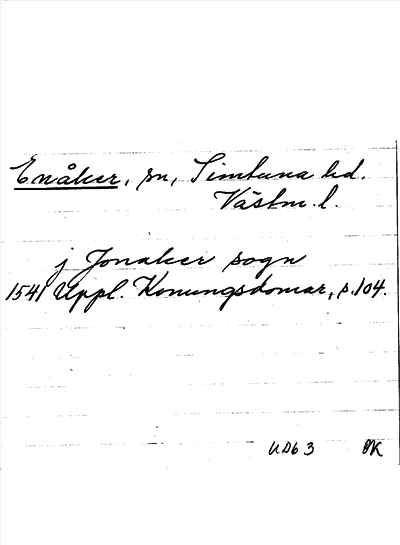 Enåker, sn, Simtuna hd.
Västm. l.
j Jonaker sogn
1541 Uppl. Konungsdomar, s. 104.
UDb 3 BK